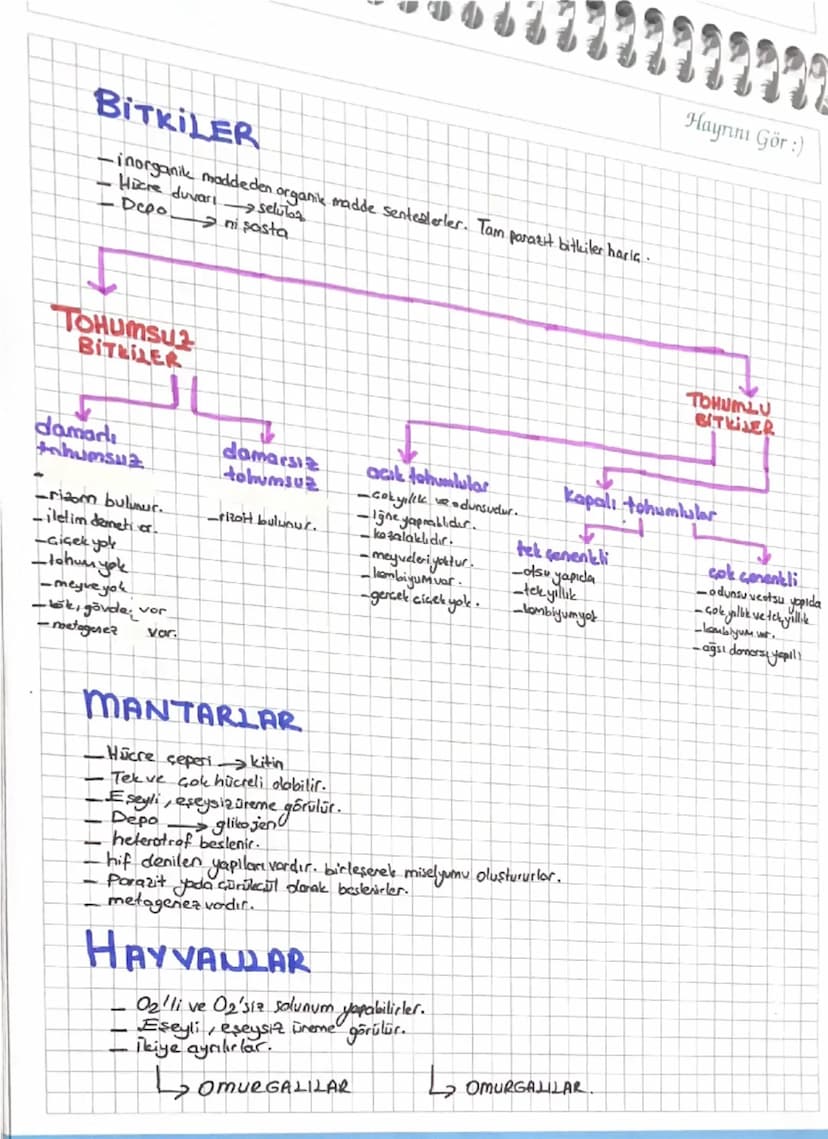 Hayrını Gör :)
BİTKİLER
- inorganik maddeden organik madde sentezlerler. Tam parazit bitkiler hariç.
- Hücre duvarı → selüloz
- Depo → nişasta
TOHUMSUZ
BİTKİLER
TOHUMLU
BİTKİLER
damarlı
tohumsuz
-
- rizom bulunur.
- iletim demeti er.
- çiçek yok
- tohum yok
- meyve yok
- kök, gövde, var
- metagenez var.
damarsız
tohumsuz
- rizoit bulunur.
açık tohumlular
- çok yıllık ve odunsudur.
- iğne yapraklıdır.
- kozalaklıdır.
- meyveleri yoktur.
- kambiyum var.
- gerçek çiçek yok.
kapalı tohumlular
tek çenekli
- otsu yapıda
- tek yıllık
- kambiyum yok
çok çenekli
- odunsu ve otsu yapıda
- çok yıllık ve tek yıllık
- kambiyum var.
- ağsı damarsı yapılı
MANTARLAR
- Hücre çeperi → kitin
- Tek ve çok hücreli olabilir.
- Eşeyli, eşeysiz üreme görülür.
- Depo → glikojen
- heterotrof beslenir.
- hif denilen yapıları vardır. birleşerek miselyumu oluştururlar.
- Parazit yada çürükçül olarak beslenirler.
- metagenez vardır.
HAYVANLAR
- O2'li ve O2'siz solunum yapabilirler.
- Eşeyli, eşeysiz üreme görülür.
- ikiye ayrılırlar.
↳ OMURGALILAR ↳ OMURGALILAR.